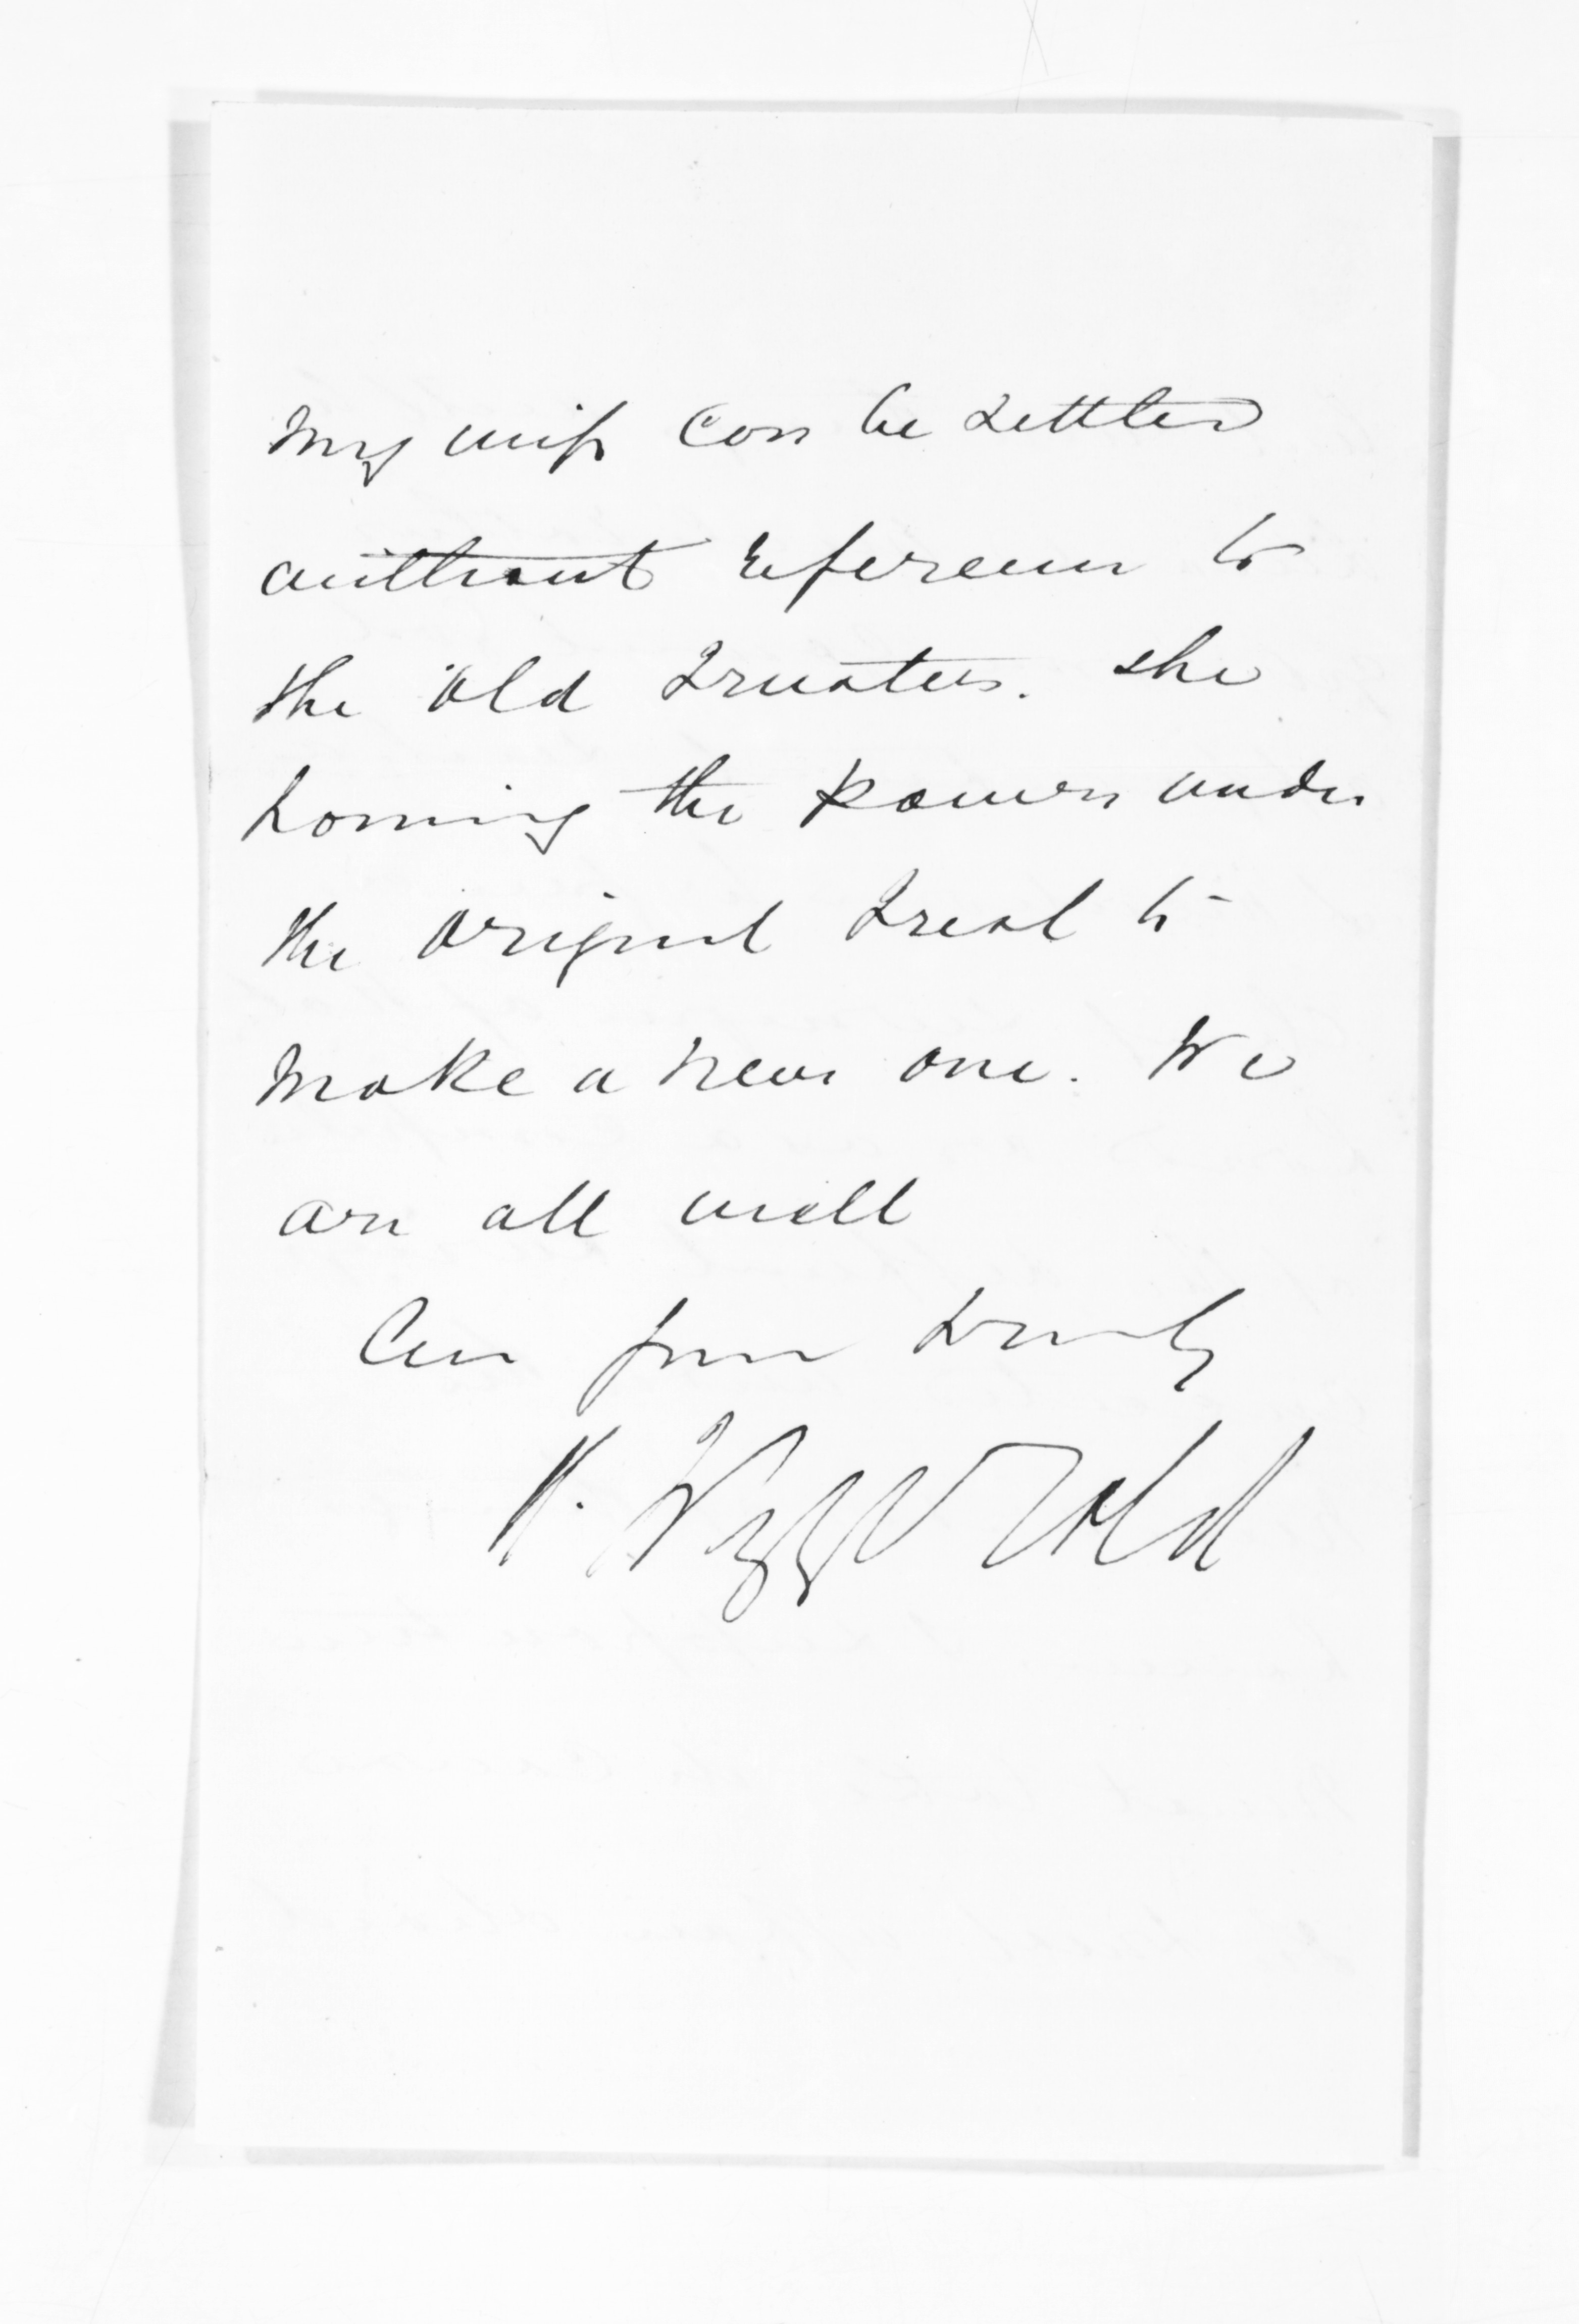 My wife can be settled
without reference to
the old Trustees. She
having the power under
the original Trust to
make a new one. We
are all well
Ever yours truly